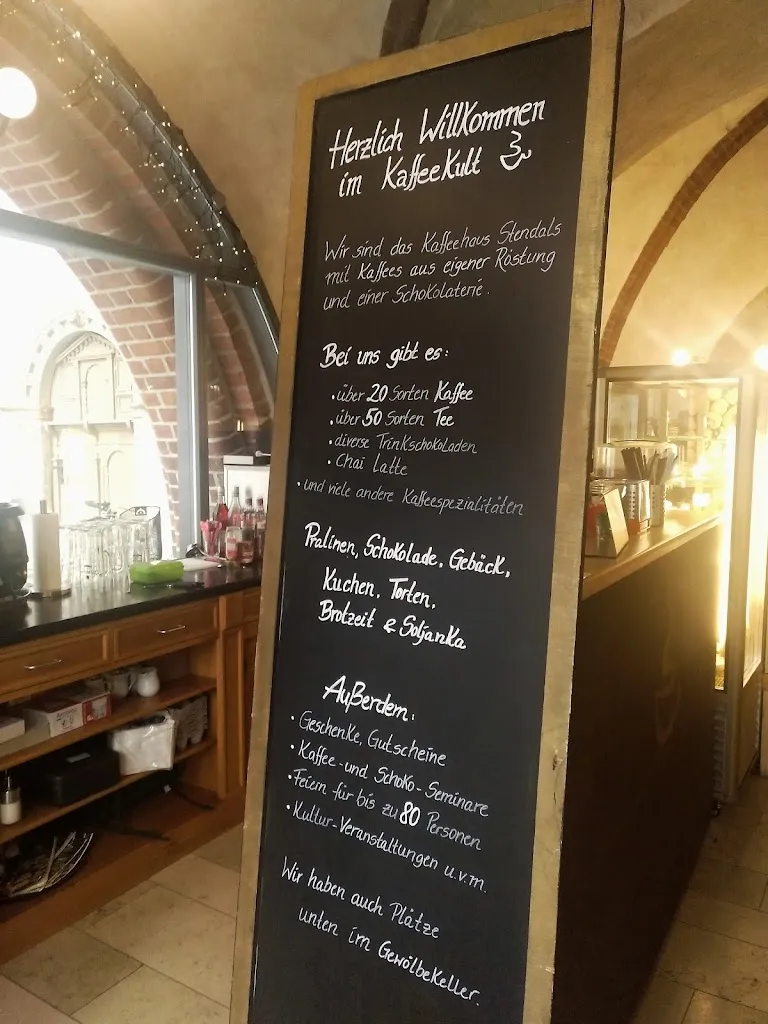 Herzlich Willkommen
im KaffeeKult
Wir sind das Kaffeehaus Stendals
mit Kaffees aus eigener Röstung
und einer Schokolaterie.
Bei uns gibt es:
• über 20 Sorten Kaffee
• über 50 Sorten Tee
• diverse Trinkschokoladen
• Chai Latte
• und viele andere Kaffeespezialitäten
Pralinen, Schokolade, Gebäck,
Kuchen, Torten,
Brotzeit & Soljanka
Außerdem:
• Geschenke, Gutscheine
• Kaffee- und Schoko-Seminare
• Feiern für bis zu 80 Personen
• Kultur-Veranstaltungen u.v.m.
Wir haben auch Plätze
unten im Gewölbekeller.